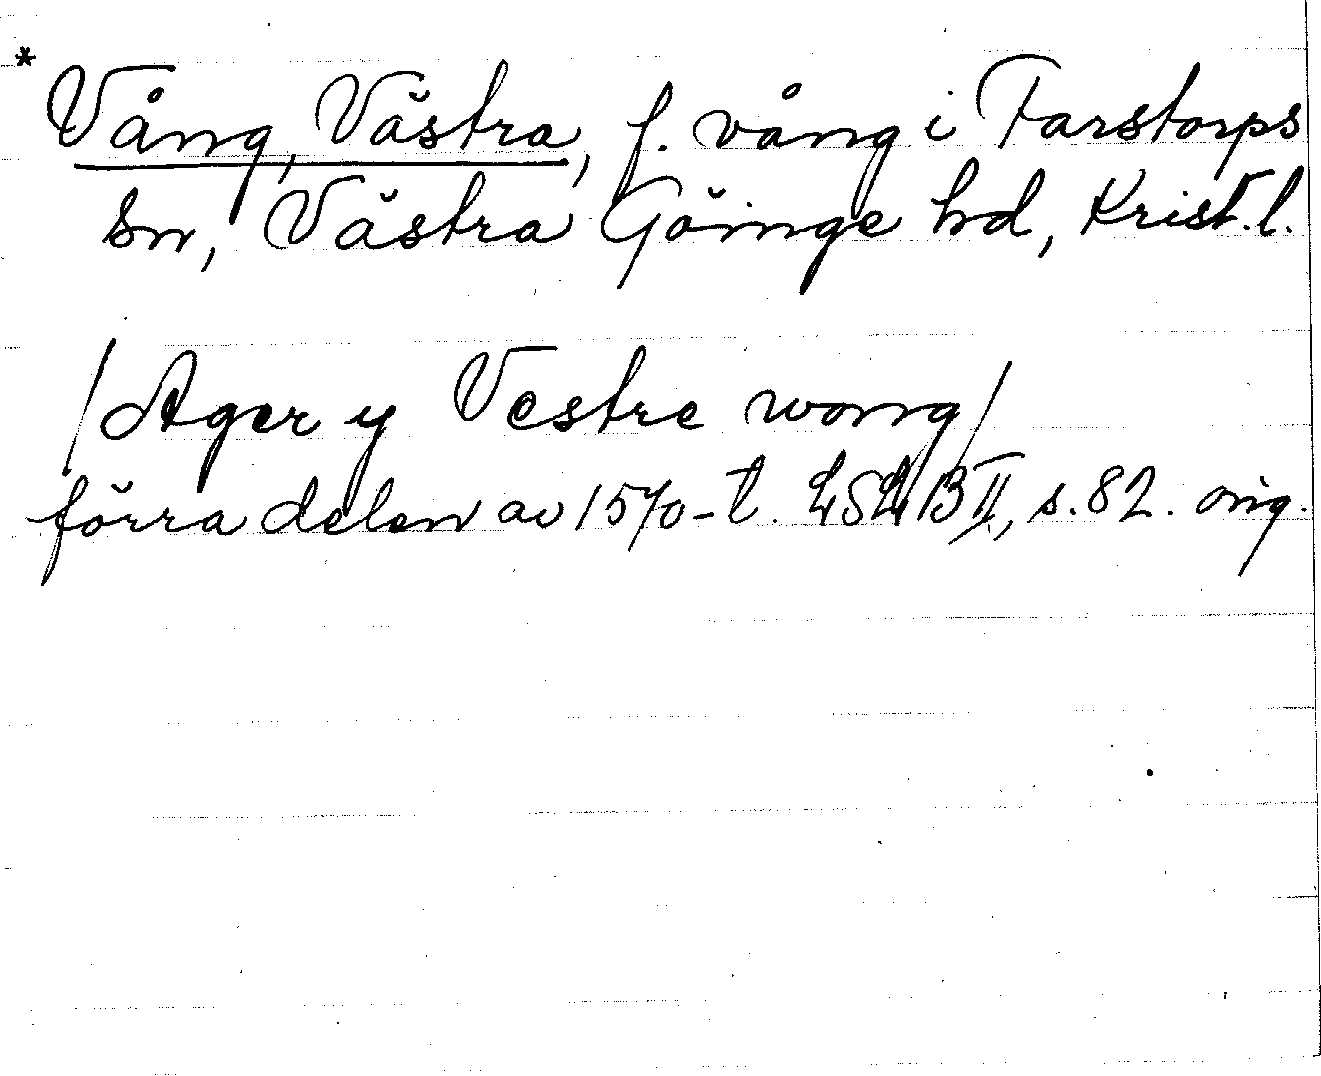 * Vång, Västra, f. vång i Farstorps
sn, Västra Göinge hd, Krist. l.
/Ager y Vestre wong/
förra delen av 1570-t. LSLB II, s. 82. orig.